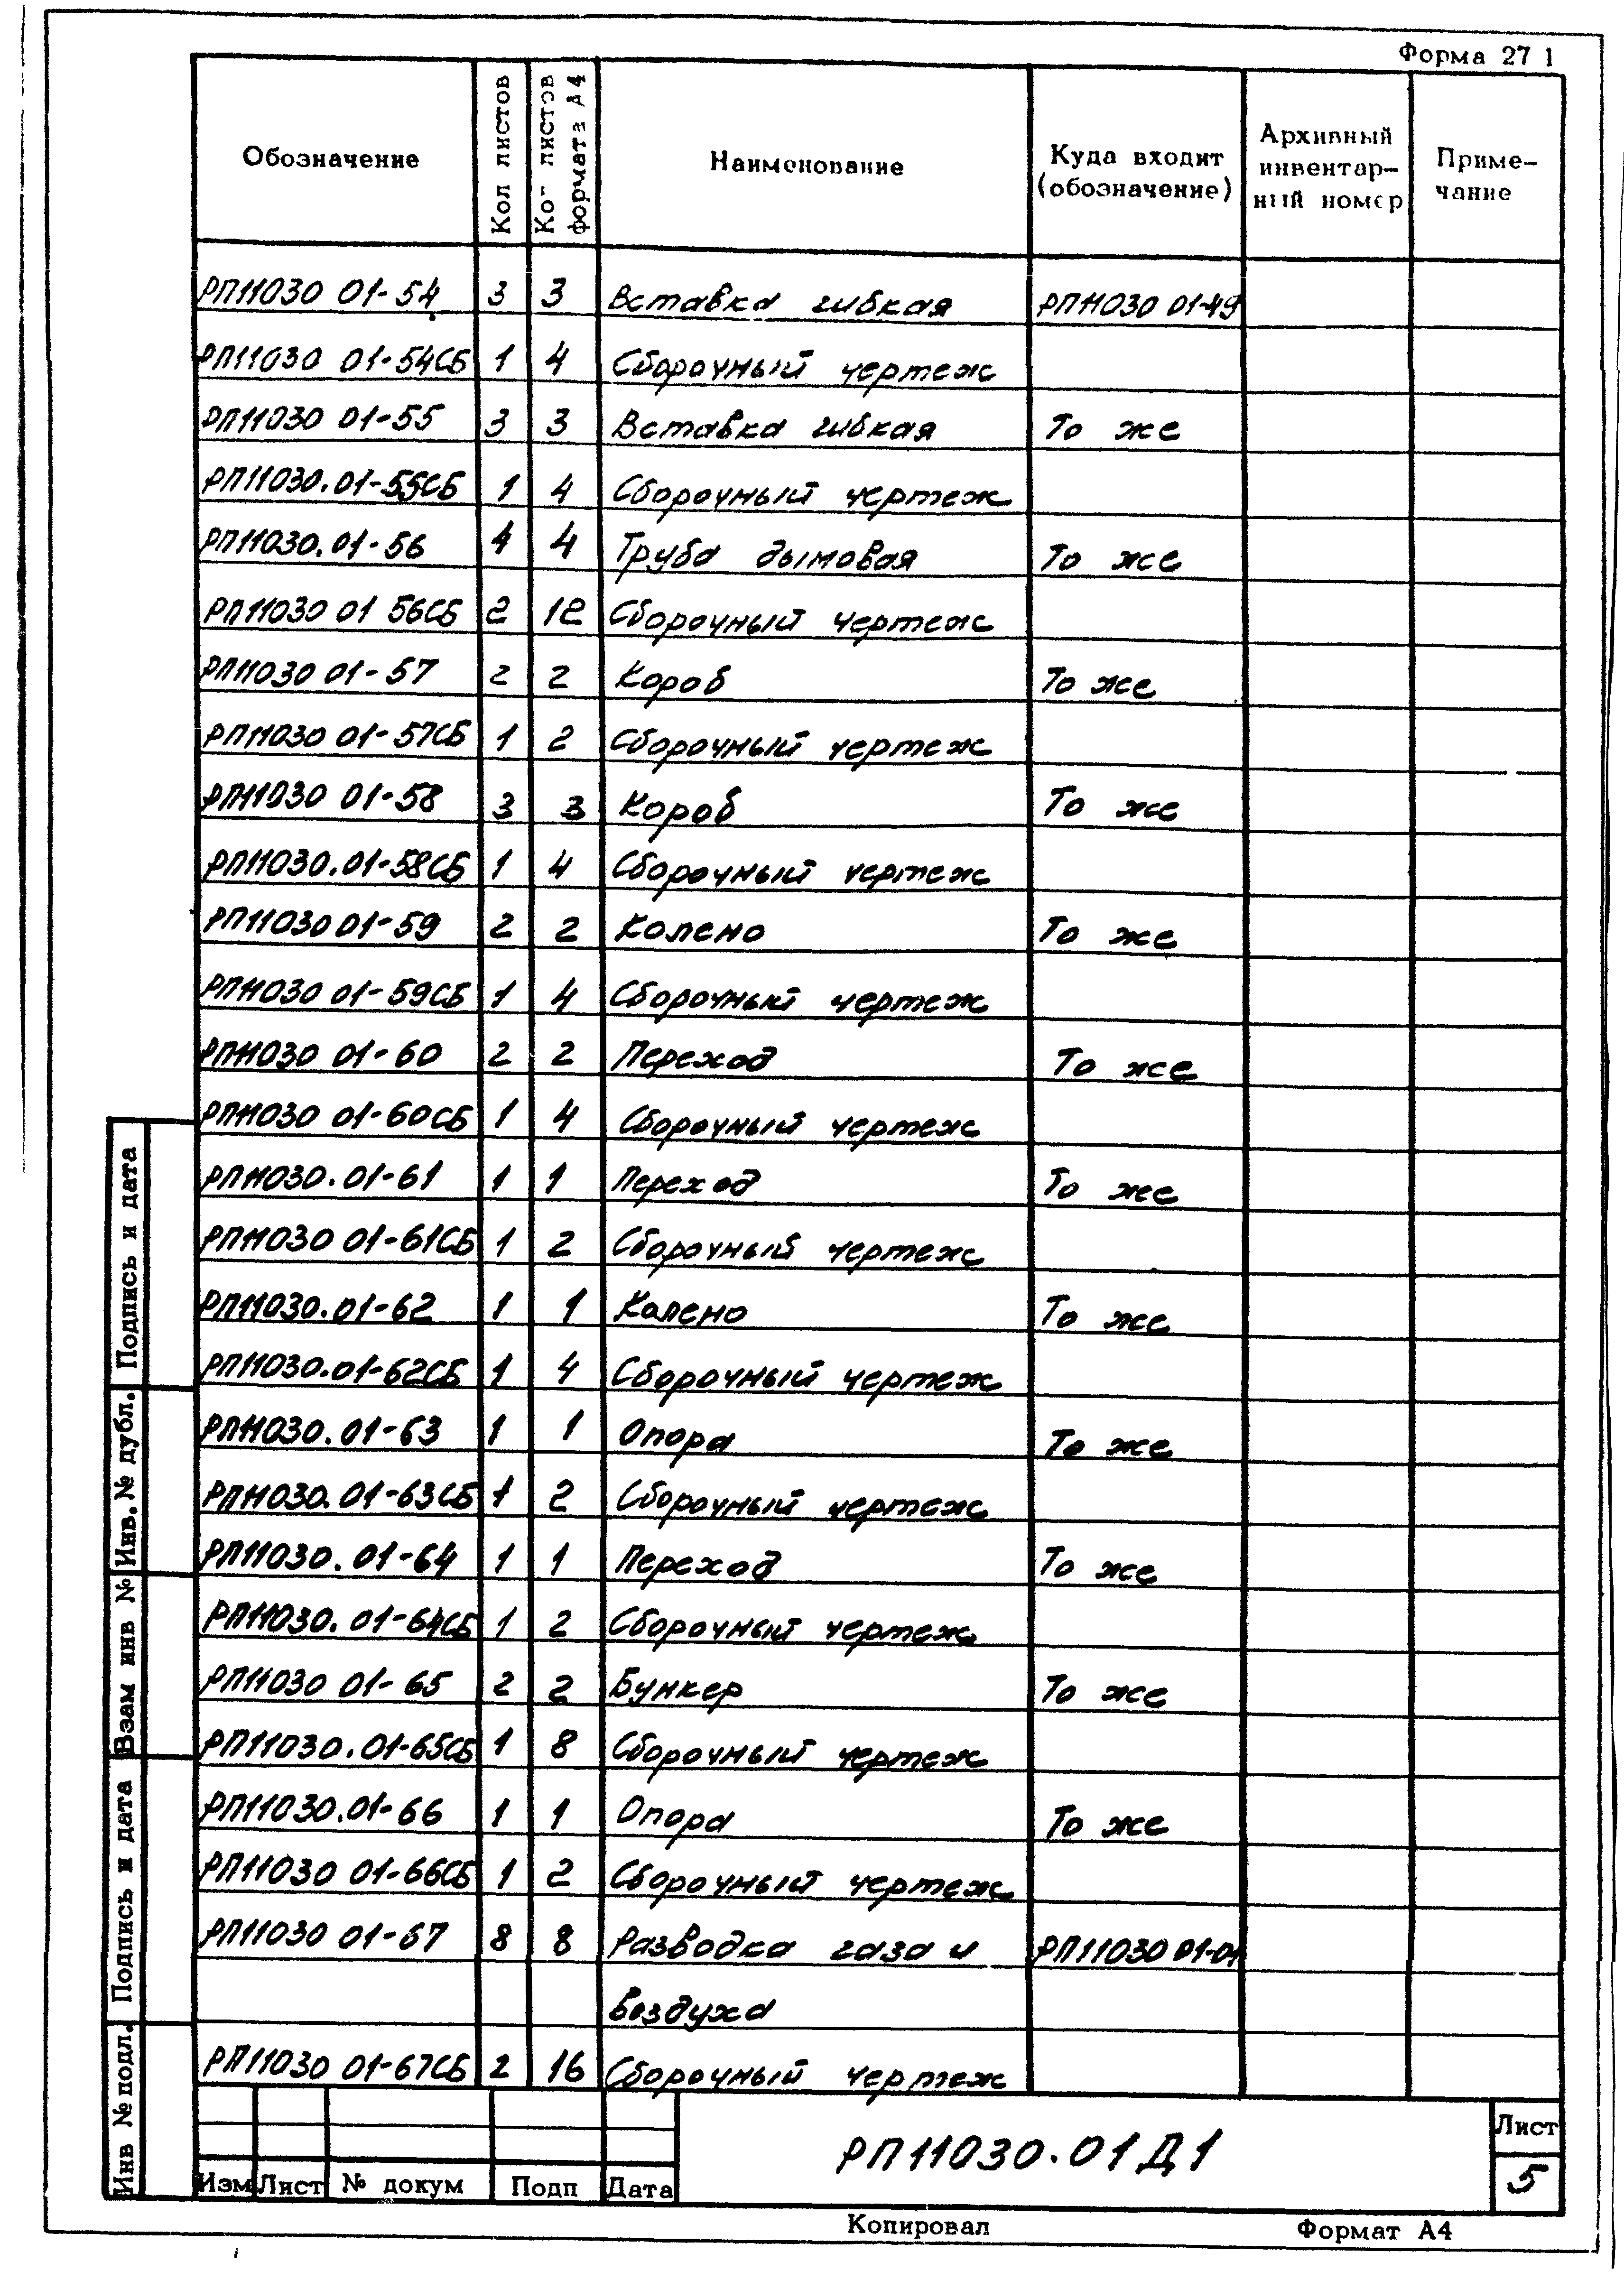 Форма 27 1
Обозначение Кол листов Ко листов формата А4 Наименование Куда входит (обозначение) Архивный инвентар- ный номер Приме- чание
РП11030 01-54 3 3 Вставка гибкая РП11030 01-49
РП11030 01-54СБ 1 4 Сборочный чертеж
РП11030 01-55 3 3 Вставка гибкая То же
РП11030.01-55СБ 1 4 Сборочный чертеж
РП11030.01-56 4 4 Труба дымовая То же
РП11030 01 56СБ 2 12 Сборочный чертеж
РП11030 01-57 2 2 Короб То же
РП11030 01-57СБ 1 2 Сборочный чертеж
РП11030 01-58 3 3 Короб То же
РП11030.01-58СБ 1 4 Сборочный чертеж
РП11030 01-59 2 2 Колено То же
РП11030 01-59СБ 1 4 Сборочный чертеж
РП11030 01-60 2 2 Переход То же
РП11030 01-60СБ 1 4 Сборочный чертеж
РП11030.01-61 1 1 Переход То же
РП11030 01-61СБ 1 2 Сборочный чертеж
РП11030.01-62 1 1 Колено То же
РП11030.01-62СБ 1 4 Сборочный чертеж
РП11030.01-63 1 1 Опора То же
РП11030.01-63СБ 1 2 Сборочный чертеж
РП11030.01-64 1 1 Переход То же
РП11030.01-64СБ 1 2 Сборочный чертеж
РП11030 01-65 2 2 Бункер То же
РП11030.01-65СБ 1 8 Сборочный чертеж
РП11030.01-66 1 1 Опора То же
РП11030 01-66СБ 1 2 Сборочный чертеж
РП11030 01-67 8 8 Разводка газа и РП11030 01-01
воздуха
РП11030 01-67СБ 2 16 Сборочный чертеж
Инв № подл. Подпись и дата Взам инв № Инв. № дубл. Подпись и дата
Изм Лист № докум Подп Дата
РП11030.01Д1
Лист
5
Копировал Формат А4